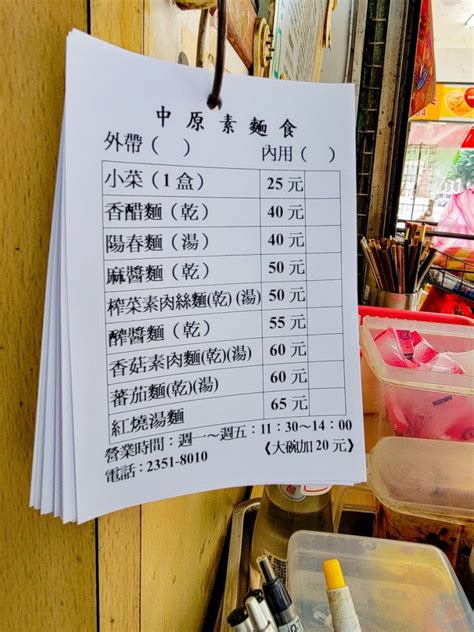 中原素麵食
外帶（ ） 內用（ ）
小菜（1盒） 25元
香醋麵（乾） 40元
陽春麵（湯） 40元
麻醬麵（乾） 50元
榨菜素肉絲麵(乾)(湯) 50元
醡醬麵（乾） 55元
香菇素肉麵(乾)(湯) 60元
蕃茄麵(乾)(湯) 60元
紅燒湯麵 65元
營業時間：週一～週五：11：30～14：00
電話：2351-8010 《大碗加20元》